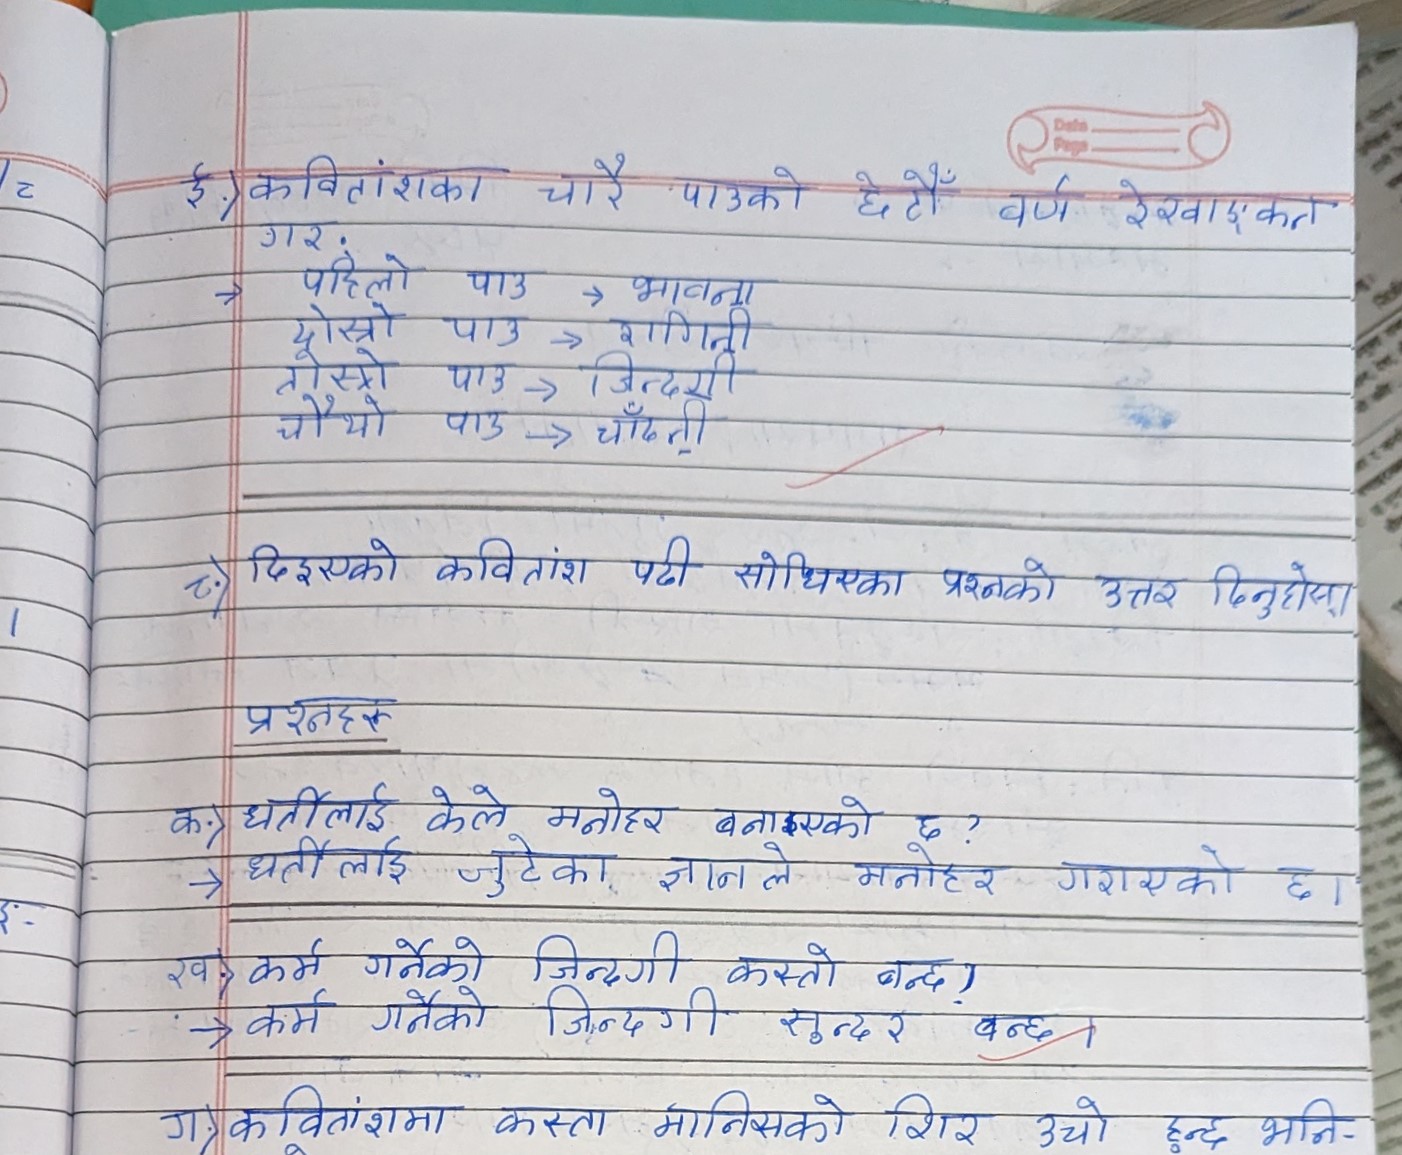 Date
Page
ई.) कवितांशका चारै पाउको छेटौँ वर्ण रेखाङ्कन
गर.
→ पहिलो पाउ → भावना
दोस्रो पाउ → रागिनी
तेस्रो पाउ → जिन्दगी
चौथो पाउ → चाँदनी
८.) दिइएको कवितांश पढी सोधिएका प्रश्नको उत्तर दिनुहोस्।
प्रश्नहरू
क.) धर्तीलाई केले मनोहर बनाइएको छ?
→ धर्तीलाई जुटेका ज्ञानले मनोहर गराएको छ।
ख.) कर्म गर्नेको जिन्दगी कस्तो बन्छ?
→ कर्म गर्नेको जिन्दगी सुन्दर बन्छ।
ग) कवितांशमा कस्ता मानिसको शिर उचो हुन्छ भनि-